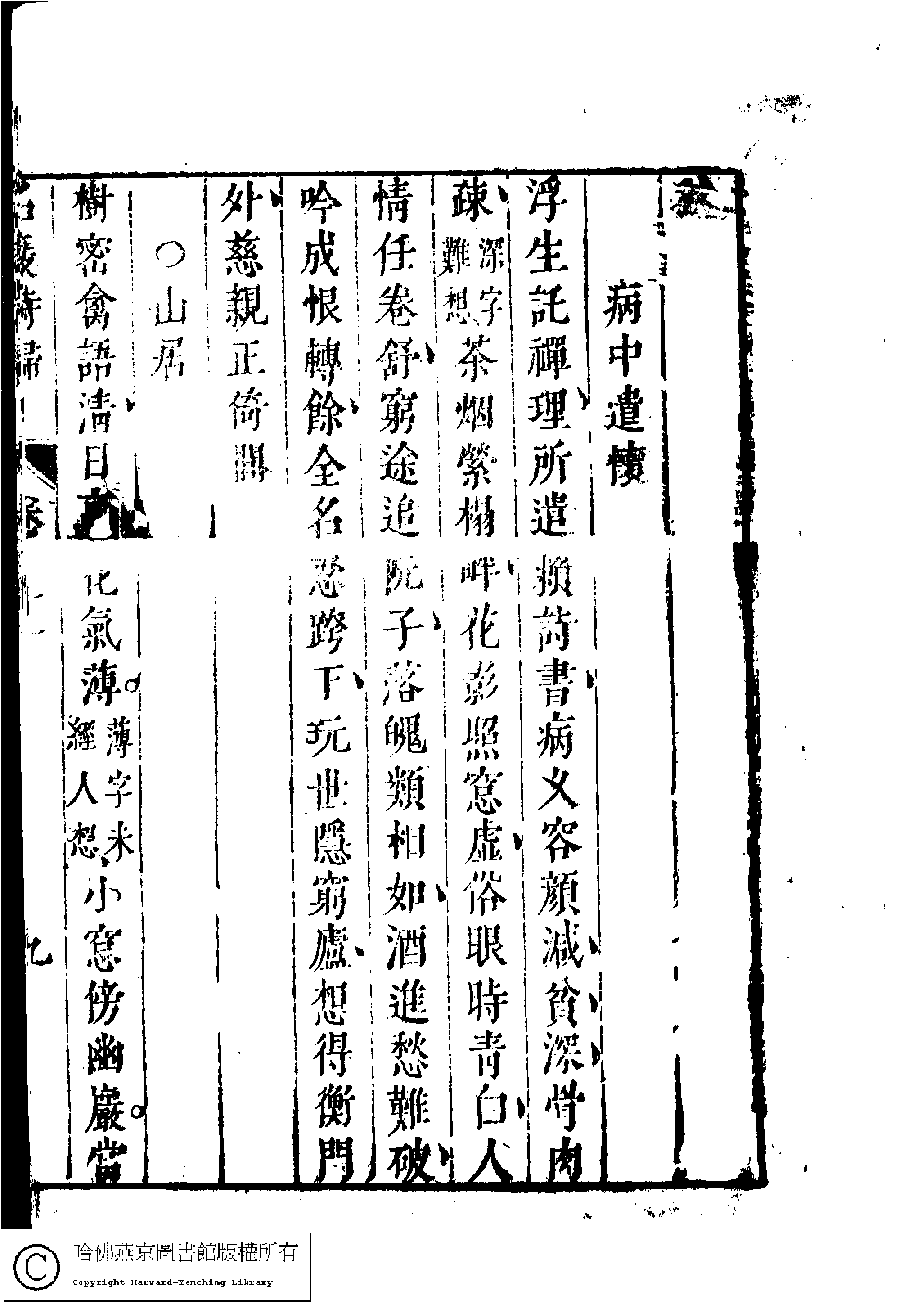 病中遣懷
浮生託禪理所遣頼詩書病久容顏減貧深骨肉
疎深字難想茶烟縈榻畔花影照窓虛俗眼時青白人
情任卷舒窮途追阮子落魄類相如酒進愁難破
吟成恨轉餘全名忍跨下玩世隱窮廬想得衡門
外慈親正倚閭
○山居
樹密禽語清日花氣薄薄字未經人想小窓傍幽巖當
名巖詩歸
九
哈佛燕京圖書館版權所有
Copyright Harvard-Yenching Library